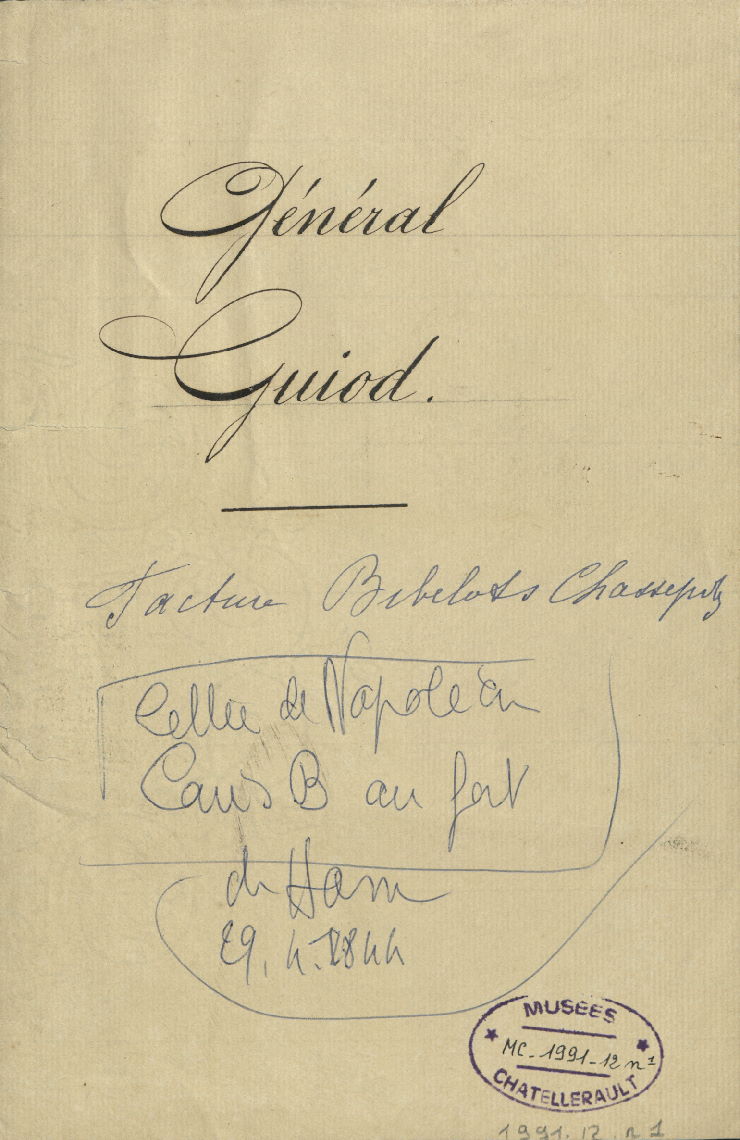 Général
Guiod.
Facture Bibelots Chassepots
Lettre de Napoléon
Louis B au fort
de Ham
29. 4. 1844
MUSEES
MC-1991-12 n°1
CHATELLERAULT
1991.12.n 1